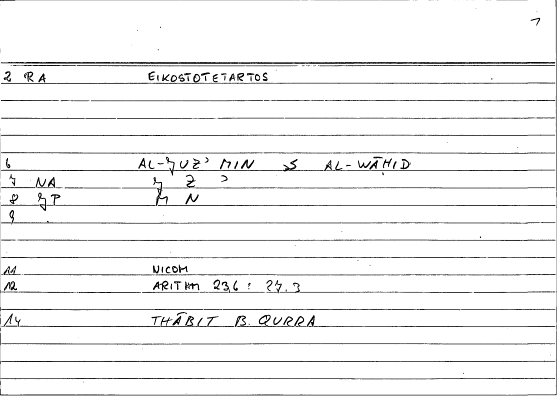 2 RA EIKOSTOTETARTOS
6 AL-ǧUZʾ MIN AL-WĀḤID
7 NA ǧ Z ʾ
8 ǧP M N
9
11 NICOM
12 ARITHM 23,6 : 27.3
14 THĀBIT B. QURRA